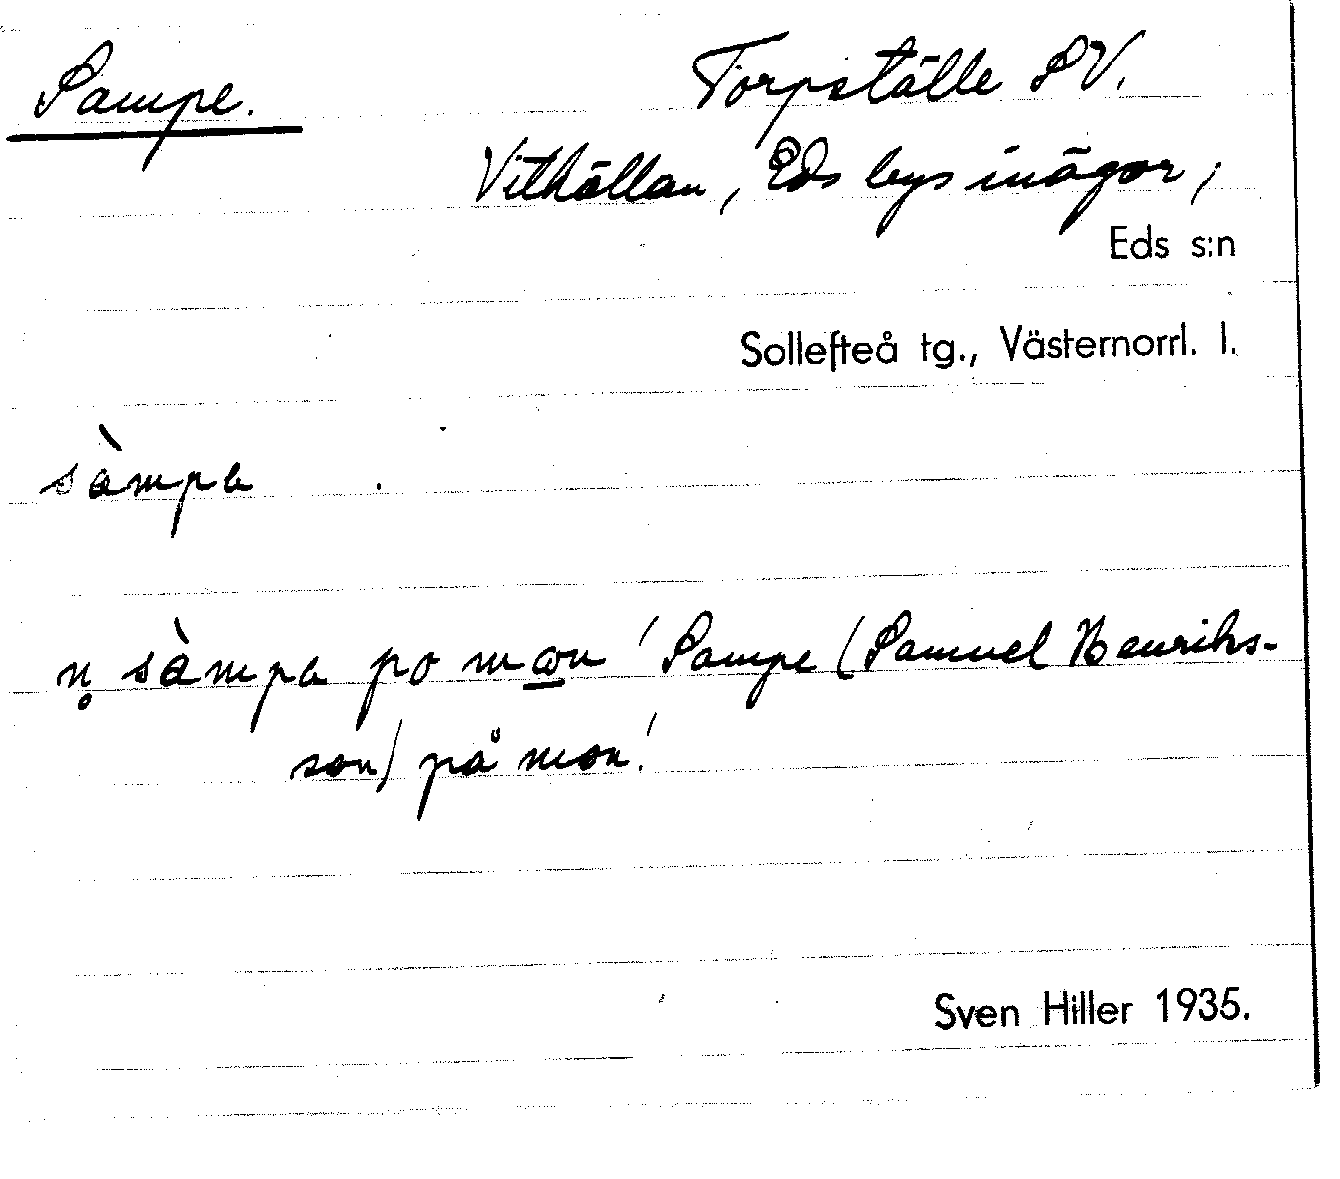 Sampe.
Torpställe SV.
Vithällan, Eds bys inägor,
Eds s:n
Sollefteå tg., Västernorrl. l.
sàmpa
n̥ sàmpa po mωn 'Sampe (Samuel Henriks-
son) på mon'
Sven Hiller 1935.